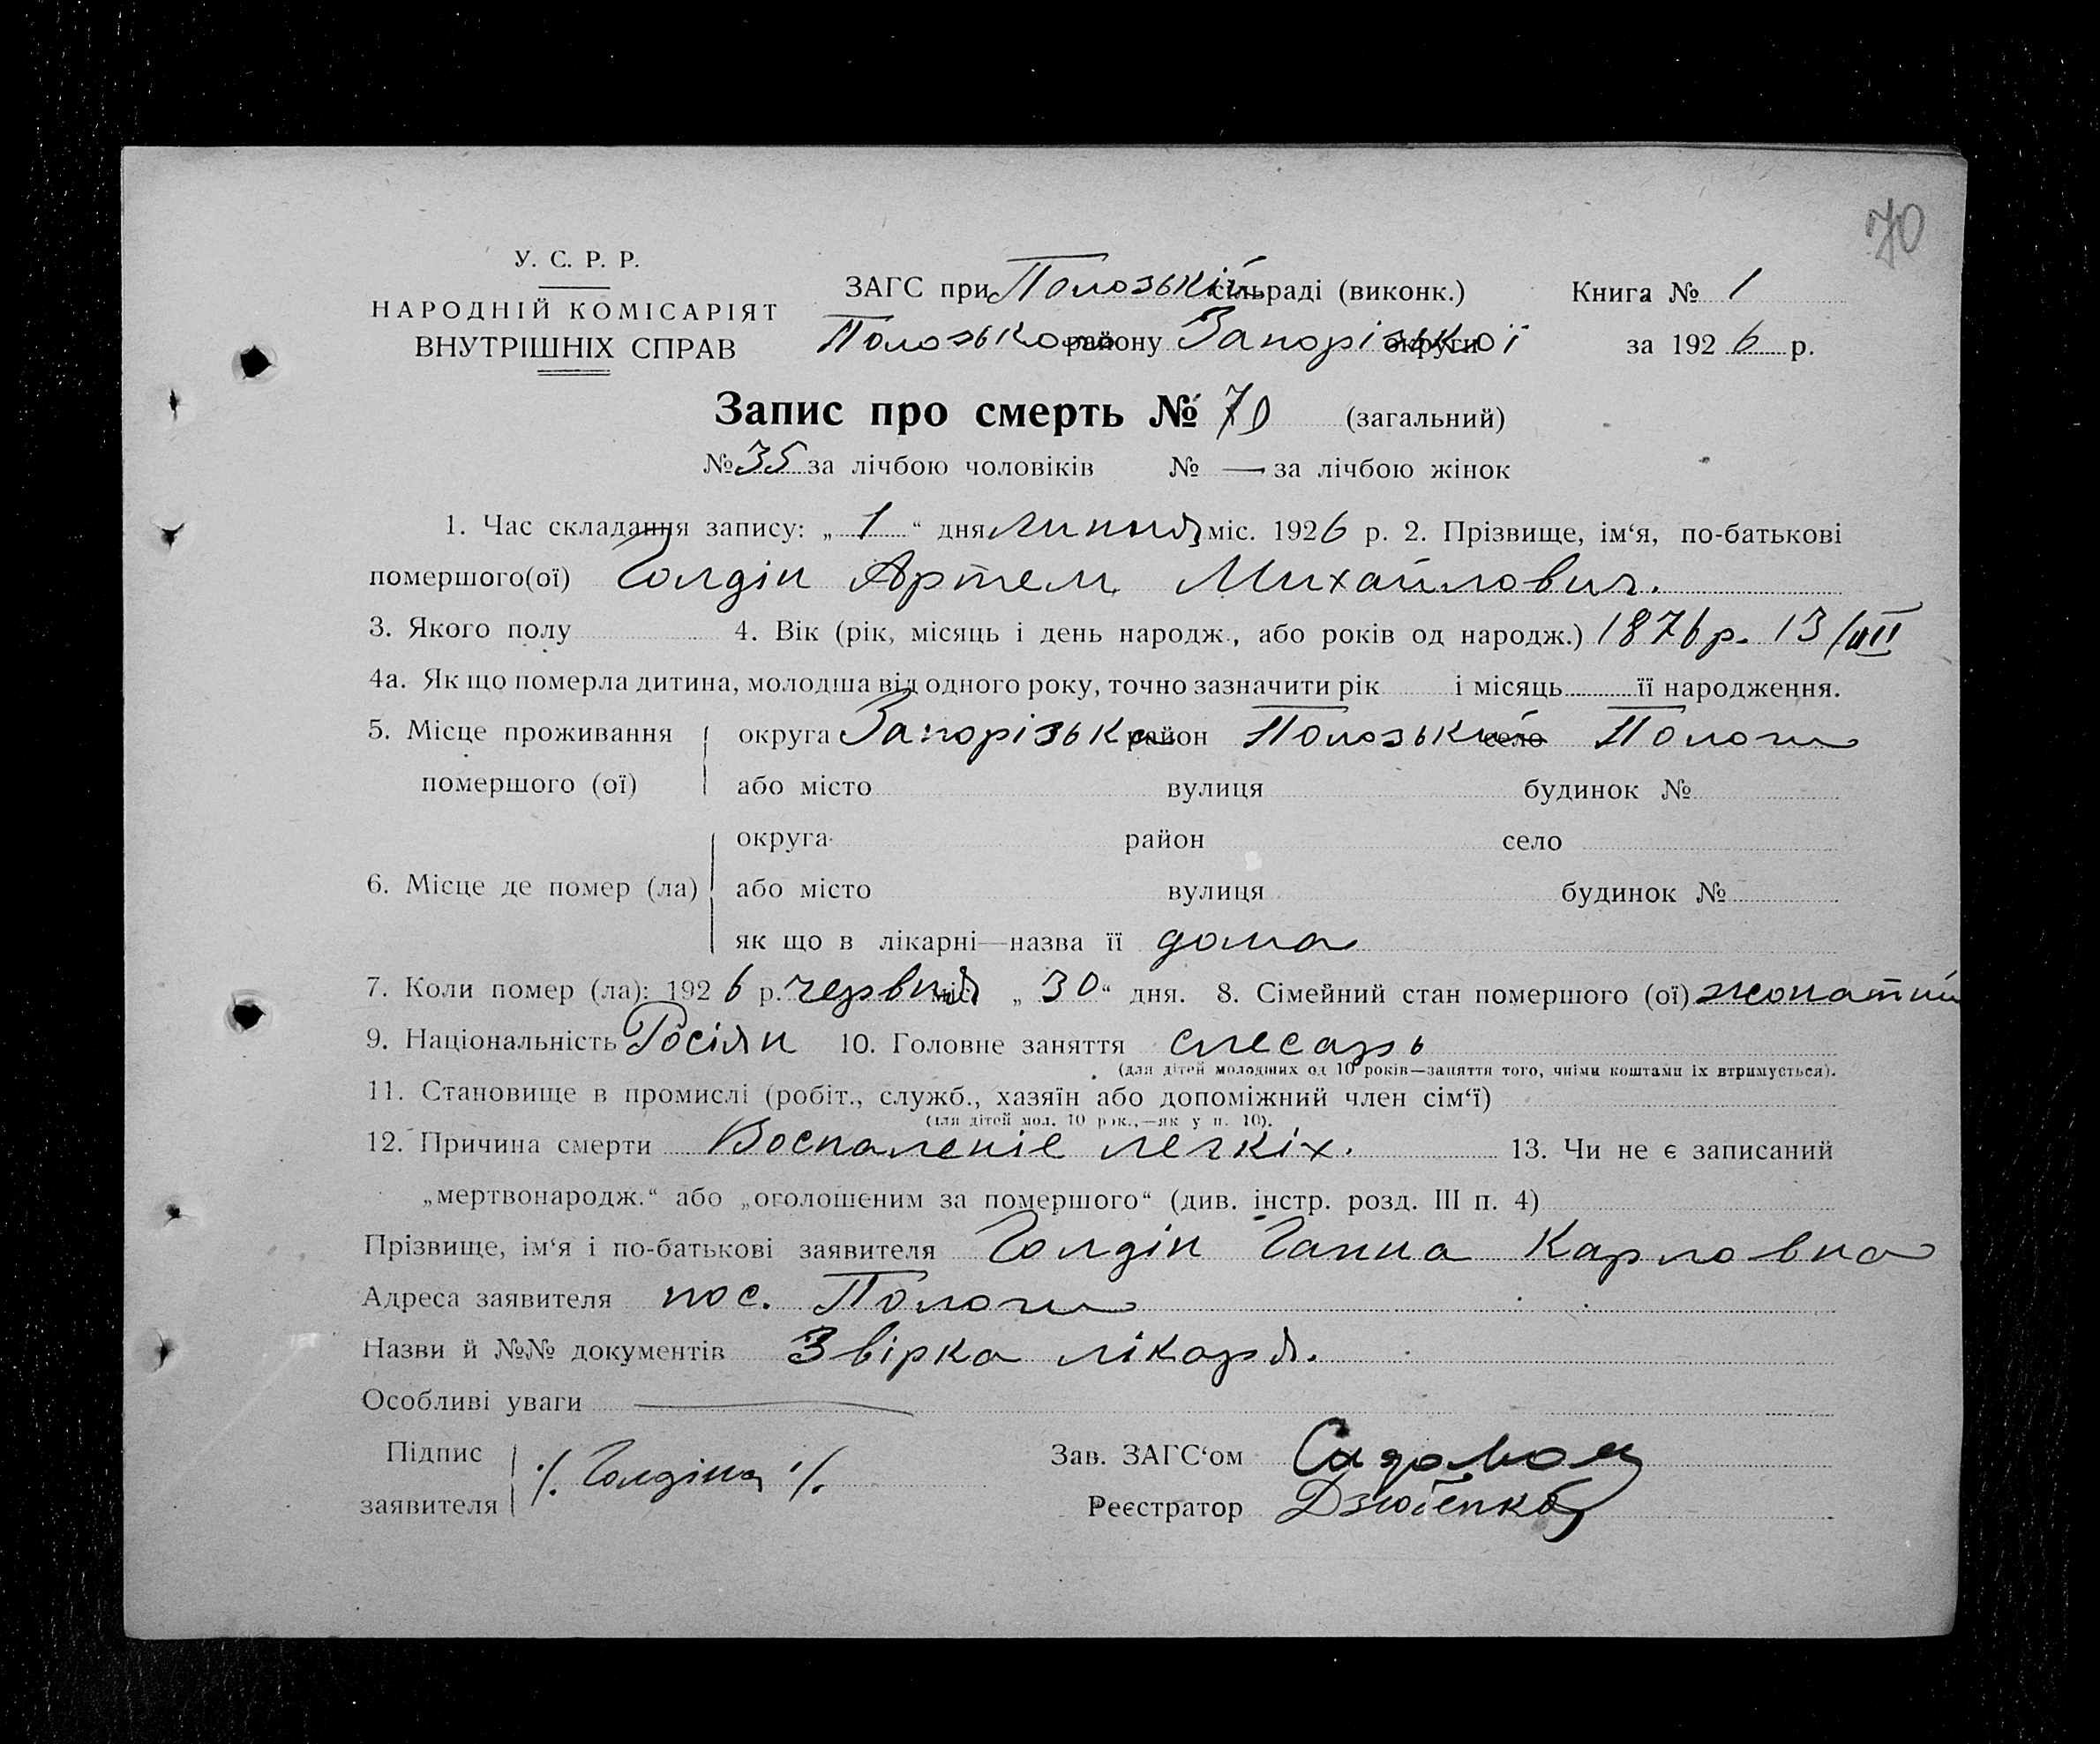 70
У. С. Р. Р.
НАРОДНІЙ КОМІСАРІЯТ
ВНУТРІШНІХ СПРАВ
ЗАГС при Полозській сільраді (виконк.)
Полозького району Запорізької округи
Книга № 1
за 1926 р.
Запис про смерть № 70 (загальний)
№ 35 за лічбою чоловіків № — за лічбою жінок
1. Час складання запису: „ 1 “ дня липня міс. 1926 р. 2. Прізвище, ім‘я, по-батькові
помершого(ої) Голдін Артем Михайлович.
3. Якого полу 4. Вік (рік, місяць і день народж., або років од народж.) 1876 р. 13/III
4а. Як що померла дитина, молодша від одного року, точно зазначити рік і місяць її народження.
5. Місце проживання помершого (ої) округа Запорізька район Полозький село Пологи
або місто вулиця будинок №
6. Місце де помер (ла) округа район село
або місто вулиця будинок №
як що в лікарні—назва її дома
7. Коли помер (ла): 1926 р. червня міс. „ 30 “ дня. 8. Сімейний стан помершого (ої) жонатий
9. Національність Росіян 10. Головне заняття слесарь
(для дітей молодших од 10 років—заняття того, чиїми коштами їх втримується).
11. Становище в промислі (робіт., служб., хазяїн або допоміжний член сім‘ї)
(для дітей мол. 10 рок.,—як у п. 10).
12. Причина смерти Воспаленіе легкіх. 13. Чи не є записаний
„мертвонародж.“ або „оголошеним за помершого“ (див. інстр. розд. III п. 4)
Прізвище, ім‘я і по-батькові заявителя Голдін Ганна Карловна
Адреса заявителя пос. Пологи
Назви й №№ документів Звірка лікаря.
Особливі уваги
Підпис заявителя ./. Голдіна ./.
Зав. ЗАГС‘ом
Реєстратор